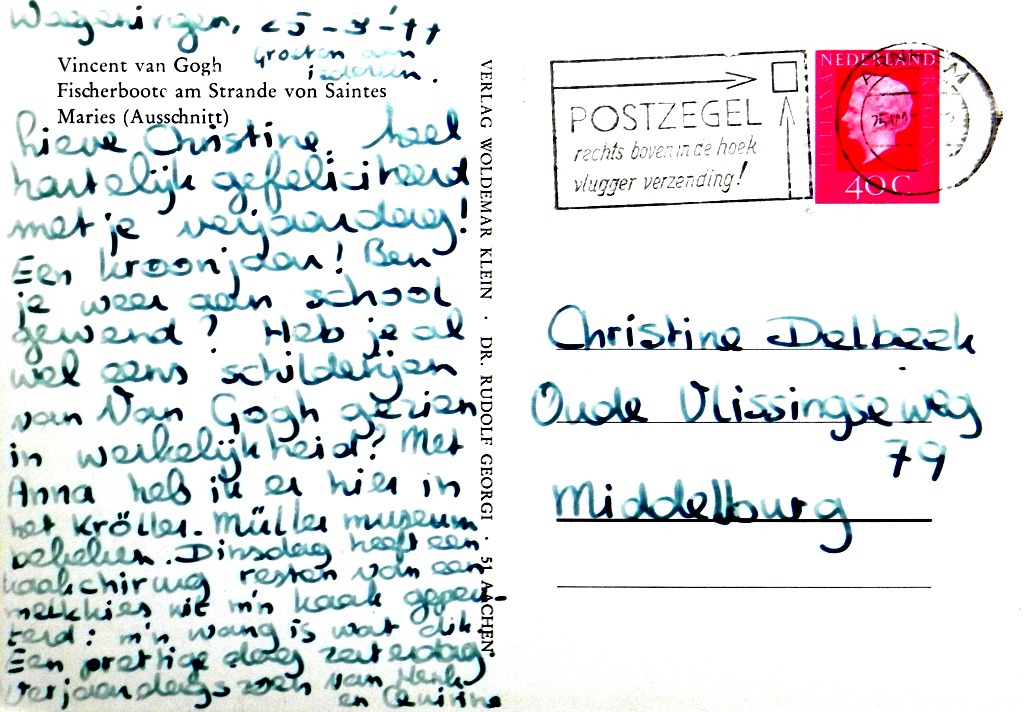 Wageningen, 25-3-'77
Groeten aan
iedereen.
Vincent van Gogh
Fischerboote am Strande von Saintes
Maries (Ausschnitt)
Lieve Christine, heel
hartelijk gefeliciteerd
met je verjaardag!
Een kroonjaar! Ben
je weer aan school
gewend? Heb je al
wel eens schilderijen
van Van Gogh gezien
in werkelijkheid? Met
Anna heb ik er hier in
het Kröller-Müller museum
bekeken. Dinsdag heeft een
kaakchirurg resten van een
melkkies uit m'n kaak gepeu-
terd: m'n wang is wat dik.
Een prettige dag zaterdag
verjaardagszoen van Henk
en Quirine
VERLAG WOLDEMAR KLEIN · DR. RUDOLF GEORGI · 51 AACHEN
POSTZEGEL
rechts boven in de hoek
vlugger verzending!
NEDERLAND
JULIANA REGINA
40C
Christine Delbeek
Oude Vlissingseweg
79
Middelburg